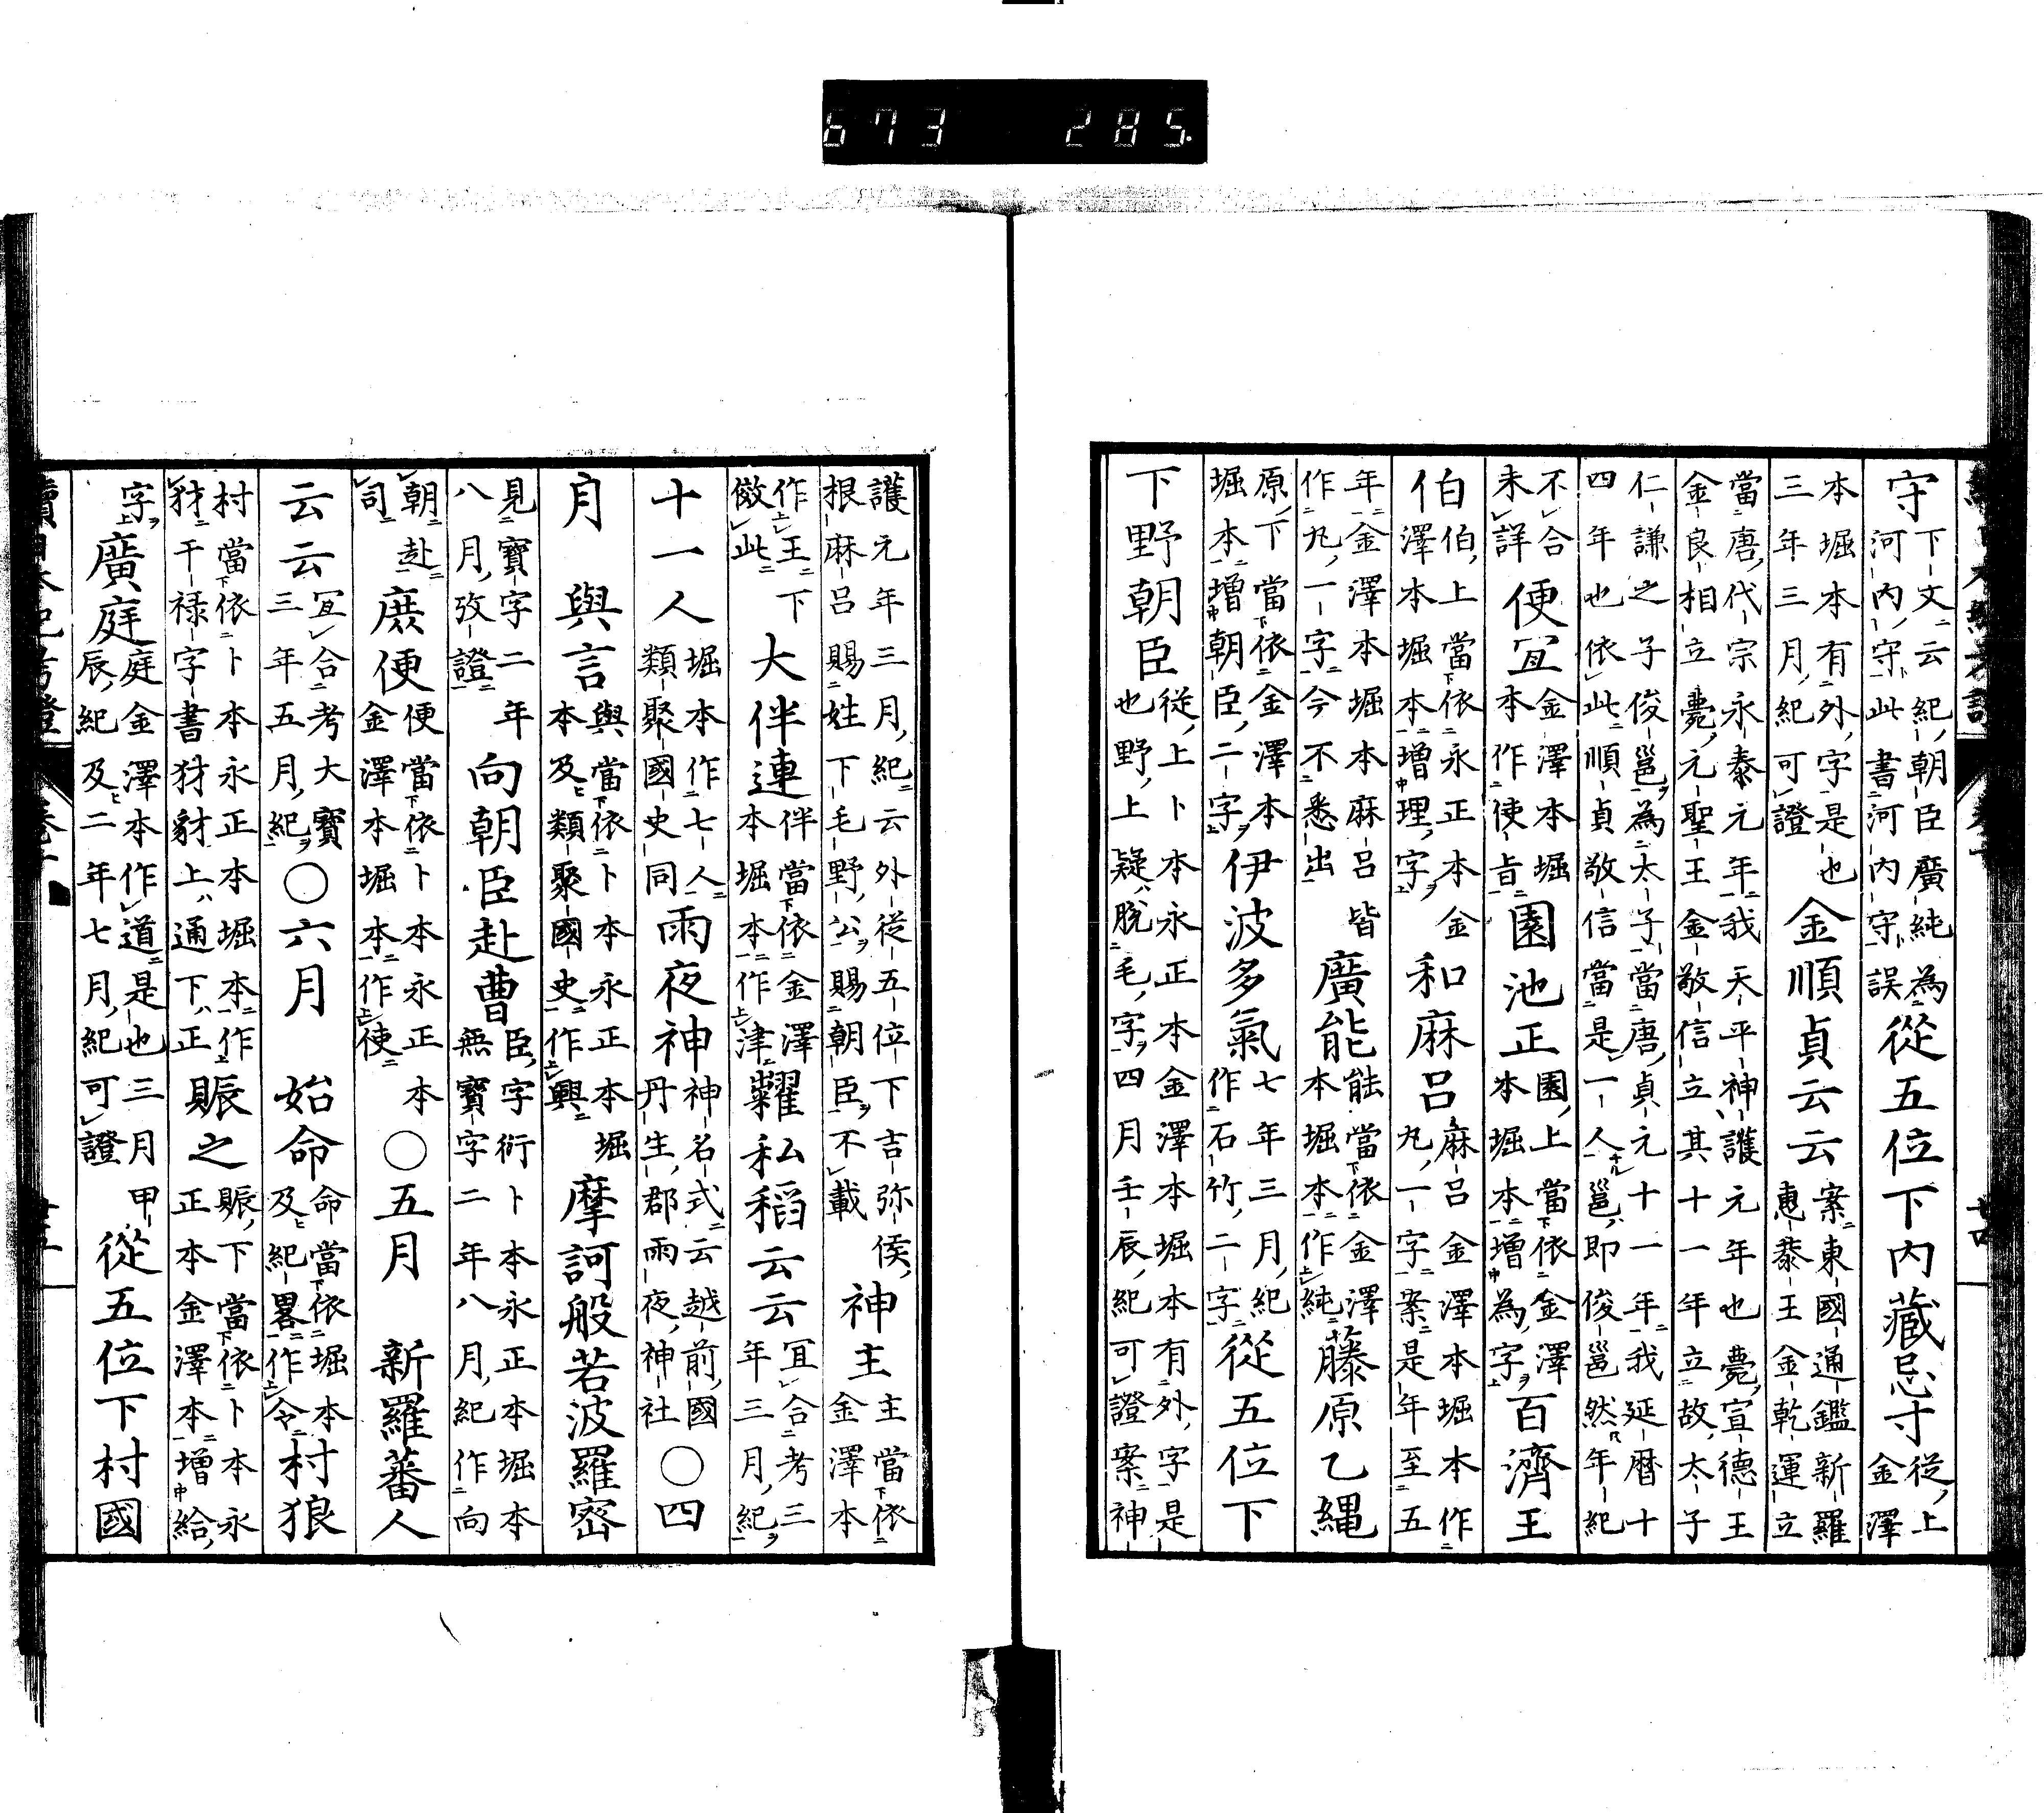 673 285
守下文云紀朝臣廣純為
河內守此書河內守誤從五位下內藏忌寸從上
金澤
本堀本有外字是也
三年三月紀可證金順貞云云案東國通鑑新羅
惠恭王金乾運立
當唐代宗永泰元年我天平神護元年也薨宣德王
金良相立薨元聖王金敬信立其十一年立故太子
仁謙之子俊邕為太子當唐貞元十一年我延曆十
四年也依此順貞敬信當是一人邕即俊邕然年紀
不合
未詳便宜金澤本堀
本作使旨園池正園上當依金澤
本堀本增為字百濟王
伯伯上當依永正本金
澤本堀本增理字和麻呂麻呂金澤本堀本作
丸一字案是年至五
年金澤本堀本麻呂皆
作丸一字今不悉出廣能能當依金澤
本堀本作純藤原乙縄
原下當依金澤本
堀本增朝臣二字伊波多氣七年三月紀
作石竹二字從五位下
下野朝臣從上卜本永正本金澤本堀本有外字是
也野上疑脫毛字四月壬辰紀可證案神
護元年三月紀云外從五位下吉弥侯
根麻呂賜姓下毛野公賜朝臣不載神主主當依
金澤本
作王下
倣此大伴連伴當依金澤
本堀本作津糶私稻云云宜合考三
年三月紀
十一人堀本作七人
類聚國史同雨夜神神名式云越前國
丹生郡雨夜神社○四
月 與言與當依卜本永正本堀
本及類聚國史作興摩訶般若波羅密
見寶字二年
八月攷證向朝臣赴曹臣字衍卜本永正本堀本
無寶字二年八月紀作向
朝赴
司庶便便當依卜本永正本
金澤本堀本作使○五月 新羅蕃人
云云宜合考大寶
三年五月紀○六月 始命命當依堀本
及紀畧作令村狼
村當依卜本永正本堀本作
犲干祿字書犲豺上通下正賑之賑下當依卜本永
正本金澤本增給
字廣庭庭金澤本作道是也三月甲
辰紀及二年七月紀可證從五位下村國